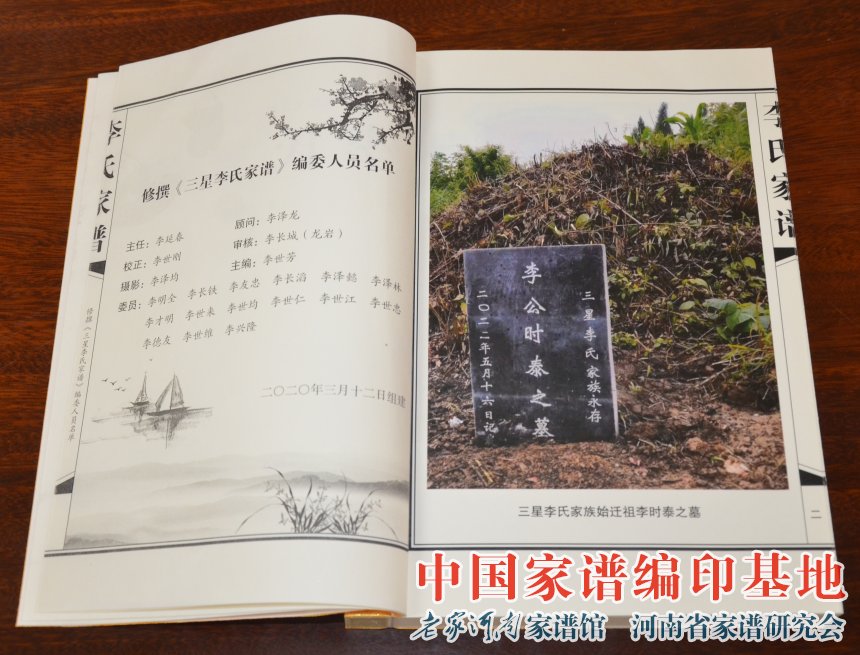 李氏家谱
修撰《三星李氏家谱》编委人员名单
顾问：李泽龙
主任：李延春
审核：李长城（龙岩）
校正：李世刚
主编：李世芳
摄影：李泽均
委员：李明全 李长铁 李友忠 李长滔 李泽懿 李泽林
李才明 李世来 李世均 李世仁 李世江 李世忠
李德友 李世维 李兴隆
二〇二〇年三月十二日组建
修撰《三星李氏家谱》编委人员名单
李氏家谱
三星李氏家族永存
李公时泰之墓
二〇二二年五月十六日记
三星李氏家族始迁祖李时泰之墓
二
中国家谱编印基地
老家河南家谱馆 河南省家谱研究会